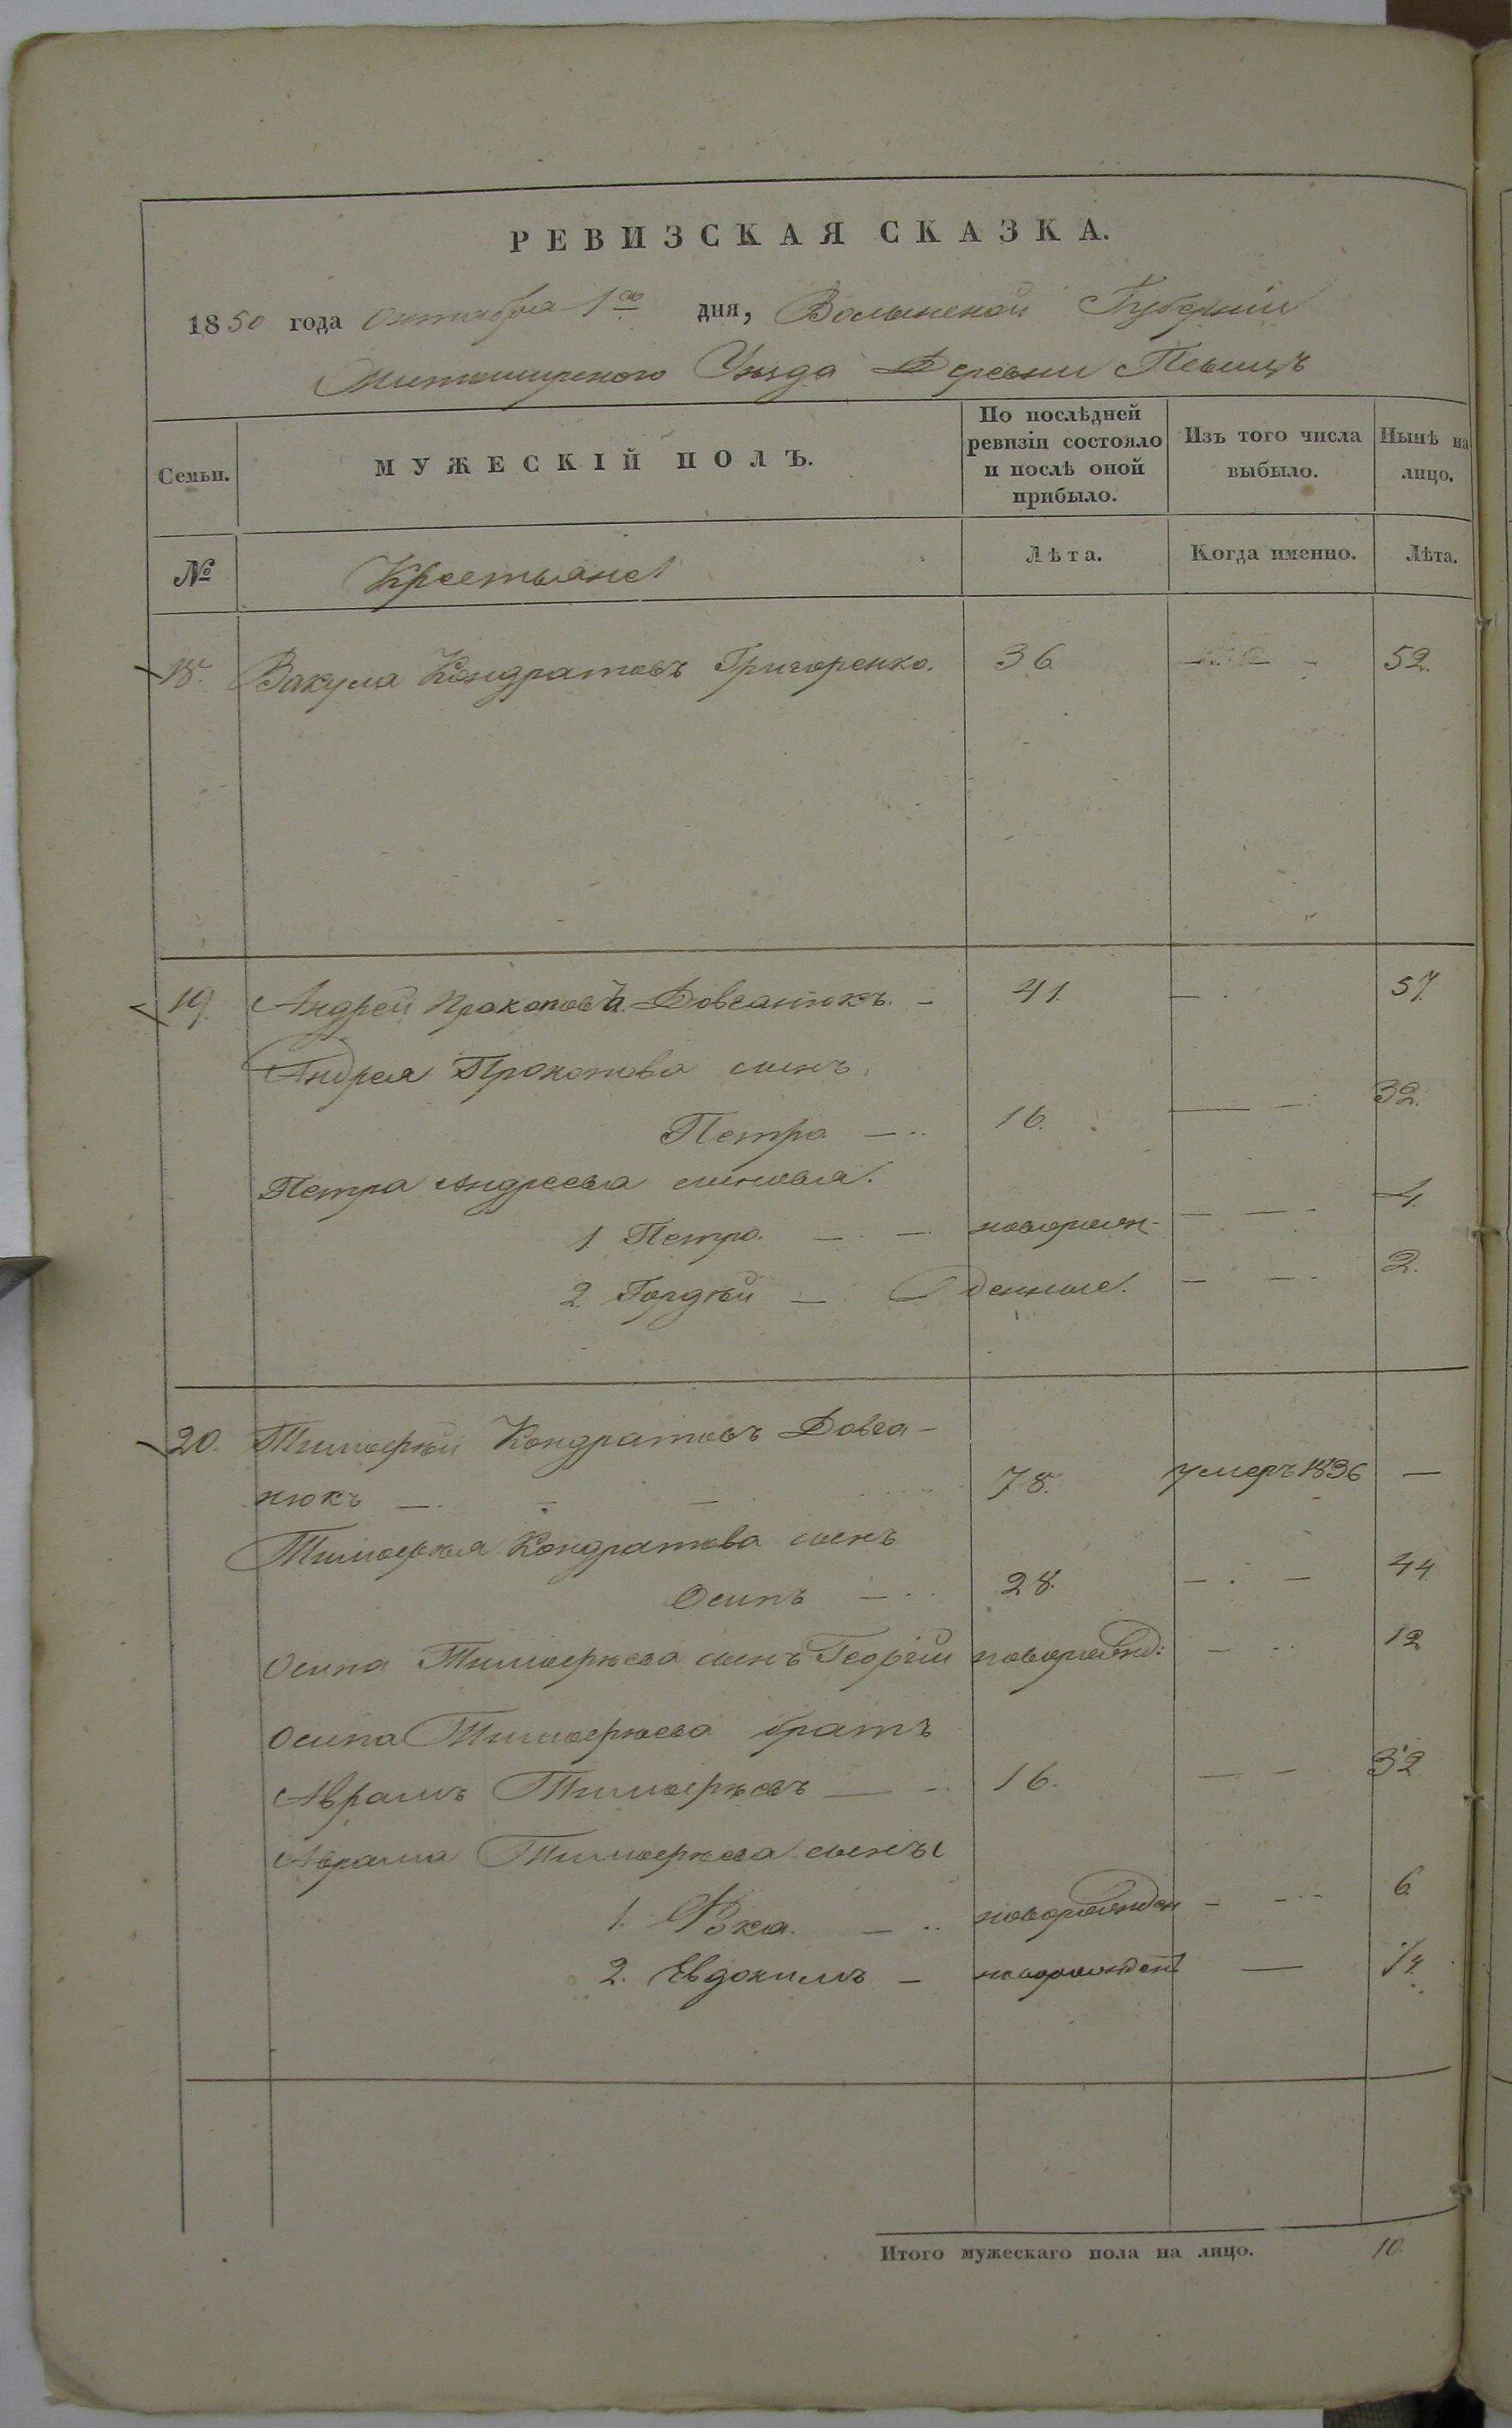 РЕВИЗСКАЯ СКАЗКА.
1850 года октября 1го дня, Волынской Губернии
Житомирского Уезда Деревни
Семьи. МУЖЕСКІЙ ПОЛЪ. По послѣдней ревизіи состояло и послѣ оной прибыло. Изъ того числа выбыло. Нынѣ на лицо.
№ Крестьяне Лѣта. Когда именно. Лѣта.
18. Вакула Кондратовъ Григоренко. 36. — 52.
19. Андрей Прокоповъ Довганюкъ. — 41. — 57.
Андрея Прокопова сынъ
Петро — 16. — 32.
Петра Андреева сыновья.
1 Петро. — — новорож- — — 4.
2. Гордѣй — денные. — — 2.
20. Тимофѣй Кондратовъ Довга-
нюкъ — — — 78. умеръ 1836 —
Тимофѣя Кондратова сынъ
Осипъ — 28. — — 44.
Осипа Тимофѣева сынъ Георгій новорожд: — 12
Осипа Тимофѣева братъ
Аврамъ Тимофѣевъ — — 16. — — 32
Аврама Тимофѣева сынъы
1. Фока. — новорожден — — 6.
2. Евдокимъ — новорожден — 1/4.
Итого мужескаго пола на лицо. 10.